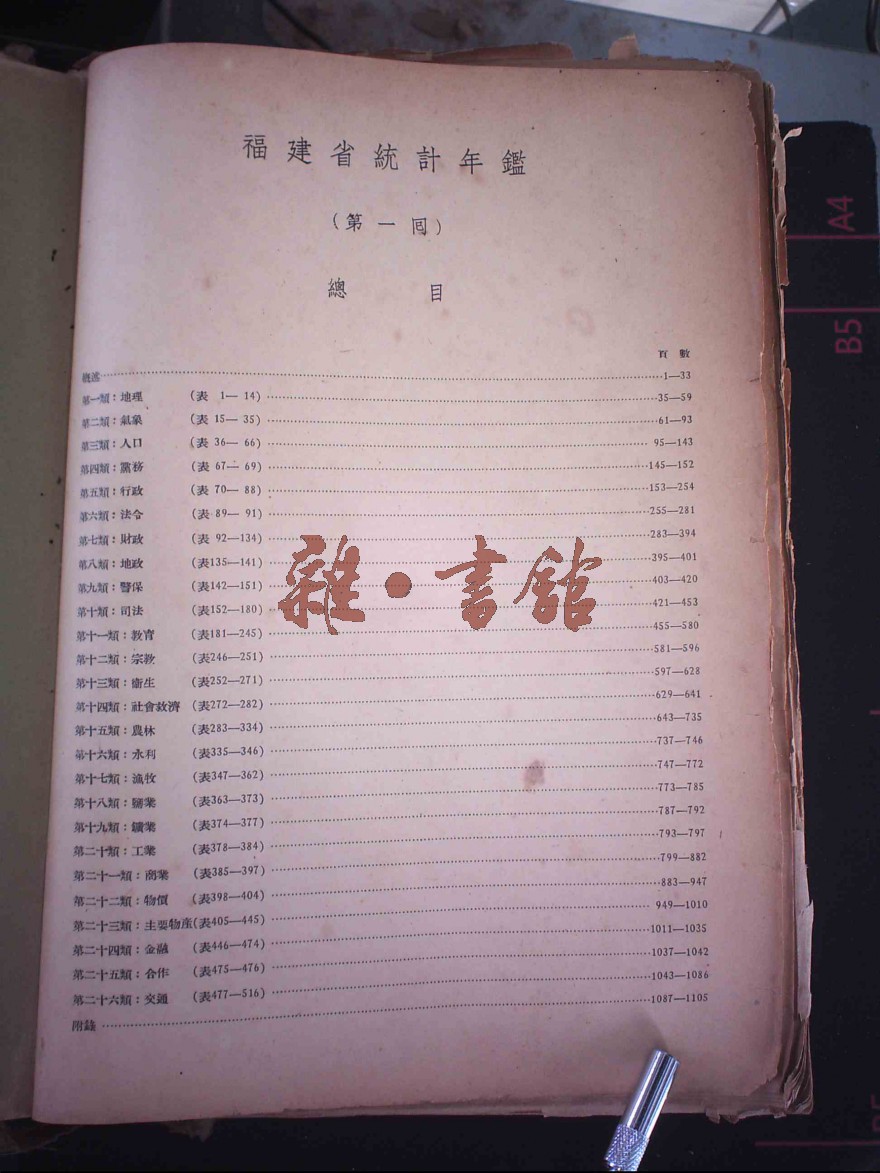 福建省統計年鑑
(第一囘)
總目
頁數
概述⋯⋯1—33
第一類：地理 (表 1— 14)⋯⋯35—59
第二類：氣象 (表 15— 35)⋯⋯61—93
第三類：人口 (表 36— 66)⋯⋯95—143
第四類：黨務 (表 67— 69)⋯⋯145—152
第五類：行政 (表 70— 88)⋯⋯153—254
第六類：法令 (表 89— 91)⋯⋯255—281
第七類：財政 (表 92—134)⋯⋯283—394
第八類：地政 (表135—141)⋯⋯395—401
第九類：警保 (表142—151)⋯⋯403—420
第十類：司法 (表152—180)⋯⋯421—453
第十一類：教育 (表181—245)⋯⋯455—580
第十二類：宗教 (表246—251)⋯⋯581—596
第十三類：衞生 (表252—271)⋯⋯597—628
第十四類：社會救濟 (表272—282)⋯⋯629—641
第十五類：農林 (表283—334)⋯⋯643—735
第十六類：水利 (表335—346)⋯⋯737—746
第十七類：漁牧 (表347—362)⋯⋯747—772
第十八類：鹽業 (表363—373)⋯⋯773—785
第十九類：鑛業 (表374—377)⋯⋯787—792
第二十類：工業 (表378—384)⋯⋯793—797
第二十一類：商業 (表385—397)⋯⋯799—882
第二十二類：物價 (表398—404)⋯⋯883—947
第二十三類：主要物產(表405—445)⋯⋯949—1010
第二十四類：金融 (表446—474)⋯⋯1011—1035
第二十五類：合作 (表475—476)⋯⋯1037—1042
第二十六類：交通 (表477—516)⋯⋯1043—1086
附錄⋯⋯1087—1105
雜·書館
A4
B5